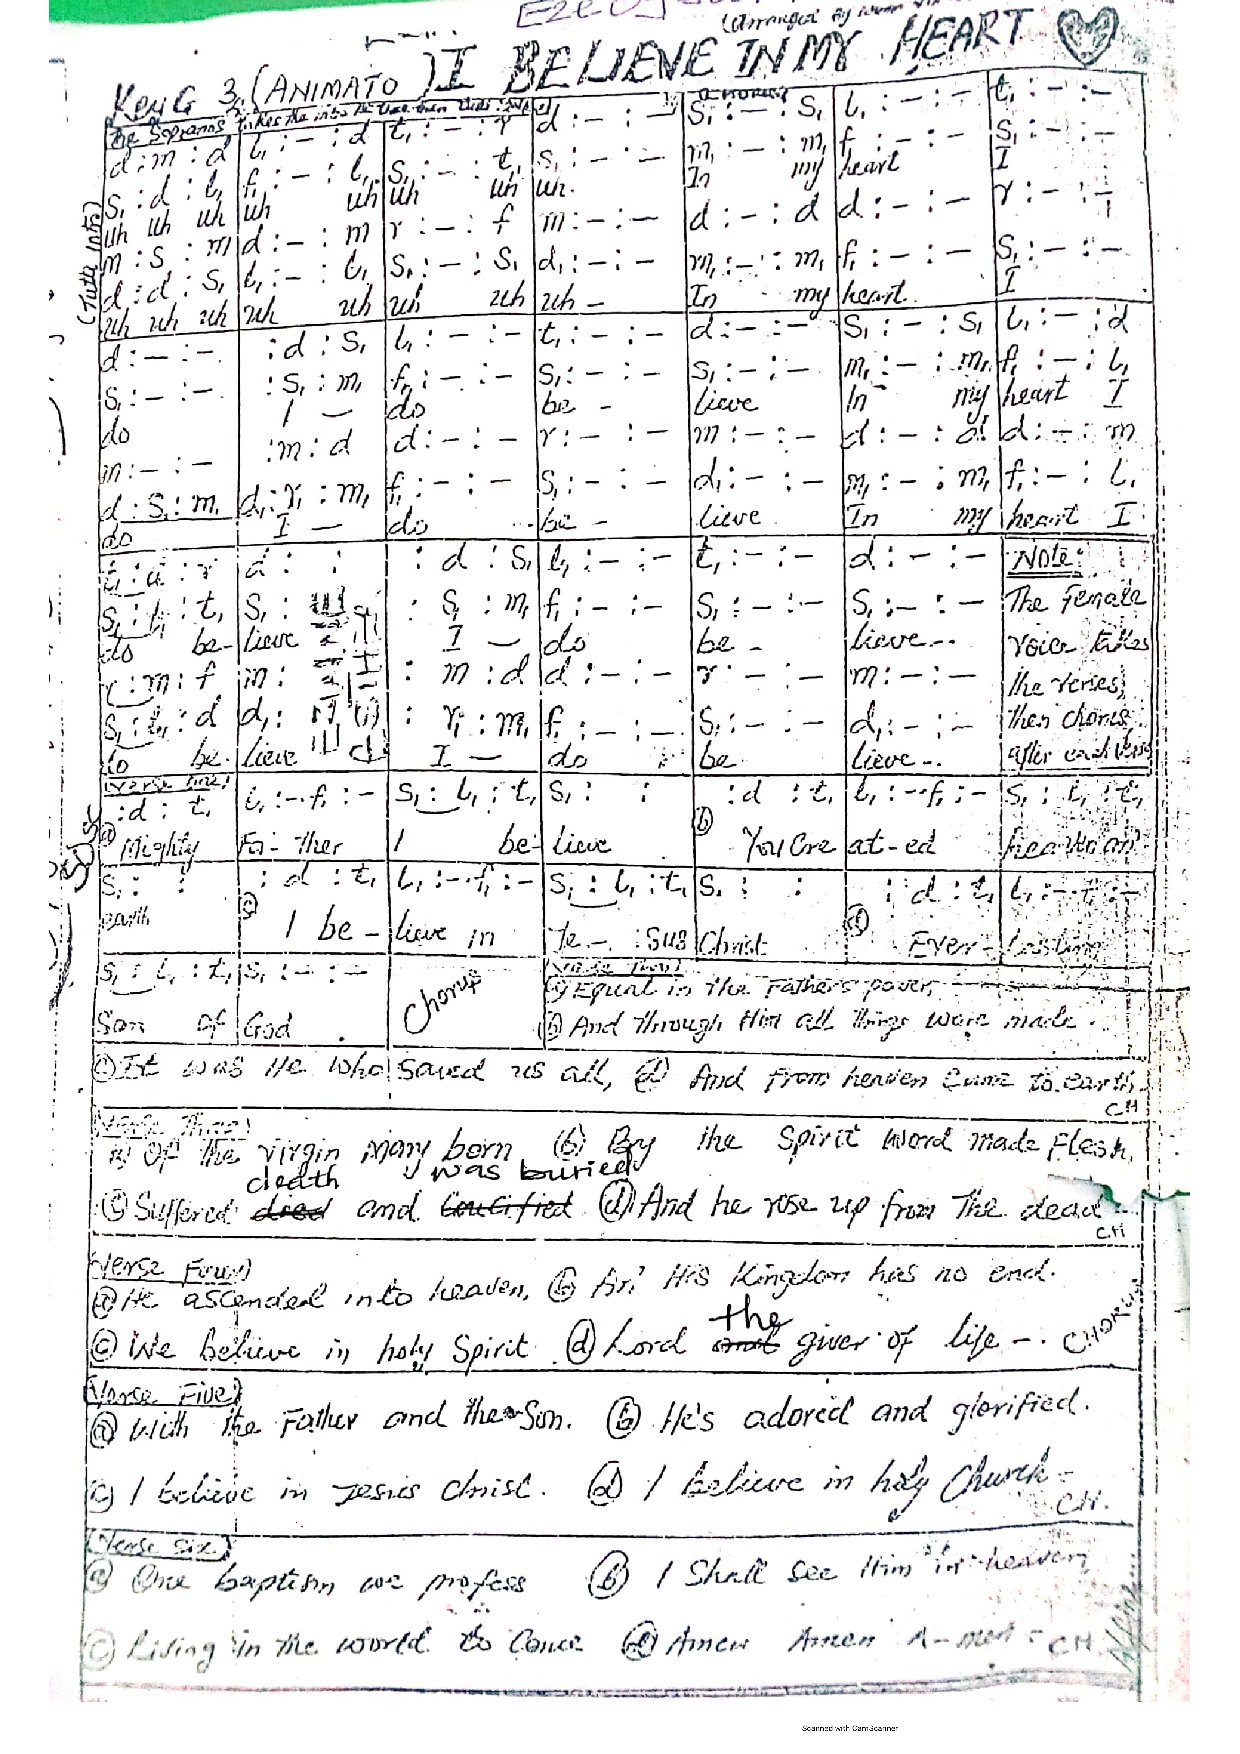 (arranged by
I BELIEVE IN MY HEART
Key G 3/4 (ANIMATO)
The Sopranos takes the intro
CHORUS
d : m : d | l, : – : d | t, : – : r | d : – : – | s, : – : s, | l, : – : – | t, : – : –
s, : d : l, | f, : – : l, | s, : – : t, | s, : – : – | m, : – : m, | f, : – : – | s, : – : –
uh uh uh | uh uh | uh uh | uh. | In my | heart | I
m : s : m | d : – : m | r : – : f | m : – : – | d : – : d | d : – : – | r : – : –
d : d : s, | l, : – : l, | s, : – : s, | d, : – : – | m, : – : m, | f, : – : – | s, : – : –
uh uh uh | uh uh | uh uh | uh – | In my | heart | I
(Tutti Intro)
d : – : – | : d : s, | l, : – : – | t, : – : – | d : – : – | s, : – : s, | l, : – : d
s, : – : – | : s, : m, | f, : – : – | s, : – : – | s, : – : – | m, : – : m, | f, : – : l,
do | I – | do | be – | lieve | In my | heart I
m : – : – | : m : d | d : – : – | r : – : – | m : – : – | d : – : d | d : – : m
d : s, : m, | d, : r, : m, | f, : – : – | s, : – : – | d, : – : – | m, : – : m, | f, : – : l,
do | I – | do | be – | lieve | In my | heart I
t, : d : r | d : : | : d : s, | l, : – : – | t, : – : – | d : – : – | Note:
s, : l, : t, | s, : | : s, : m, | f, : – : – | s, : – : – | s, : – : – | The Female
do be- | lieve | I – | do | be – | lieve -- | voice takes
r : m : f | m : | : m : d | d : – : – | r : – : – | m : – : – | the verses,
s, : l, : d | d, : | : r, : m, | f, : – : – | s, : – : – | d, : – : – | then chorus
do be- | lieve | I – | do | be- | lieve -- | after each verse
Verse One)
: d : t, | l, : – . f, : – | s, : l, : t, | s, : : | : d : t, | l, : – . f, : – | s, : l, : t,
(a) Mighty | Fa- ther | I be- | lieve | (b) You Cre | at-ed | heav'n an'
s, : : | : d : t, | l, : – . f, : – | s, : l, : t, | s, : : | : d : t, | l, : – . f, : –
earth | (c) I be – | lieve in | Je – sus | Christ | (d) Ever – | lasting
s, : l, : t, | s, : – : –
Son of | God
Chorus
Verse Two)
(a) Equal in the Father's power,
(b) And through Him all things were made.
(c) It was He who saved us all, (d) And from heaven came to earth
CH
Verse Three)
(a) Of the virgin Mary born (b) By the Spirit word made Flesh,
death was buried
(c) Suffered died and Crucified (d) And he rose up from The dead
CH
Verse Four)
(a) He ascended into heaven, (b) An' His Kingdom has no end.
the
(c) We believe in holy Spirit (d) Lord and giver of life –. CHORUS
(Verse Five)
(a) With the Father and the Son. (b) He's adored and glorified.
(c) I believe in Jesus Christ. (d) I believe in holy Church –
CH.
(Verse Six)
(a) One baptism we profess (b) I Shall see Him in heaven,
(c) Living in the world to Come (d) Amen Amen A-men – CH.
Scanned with CamScanner